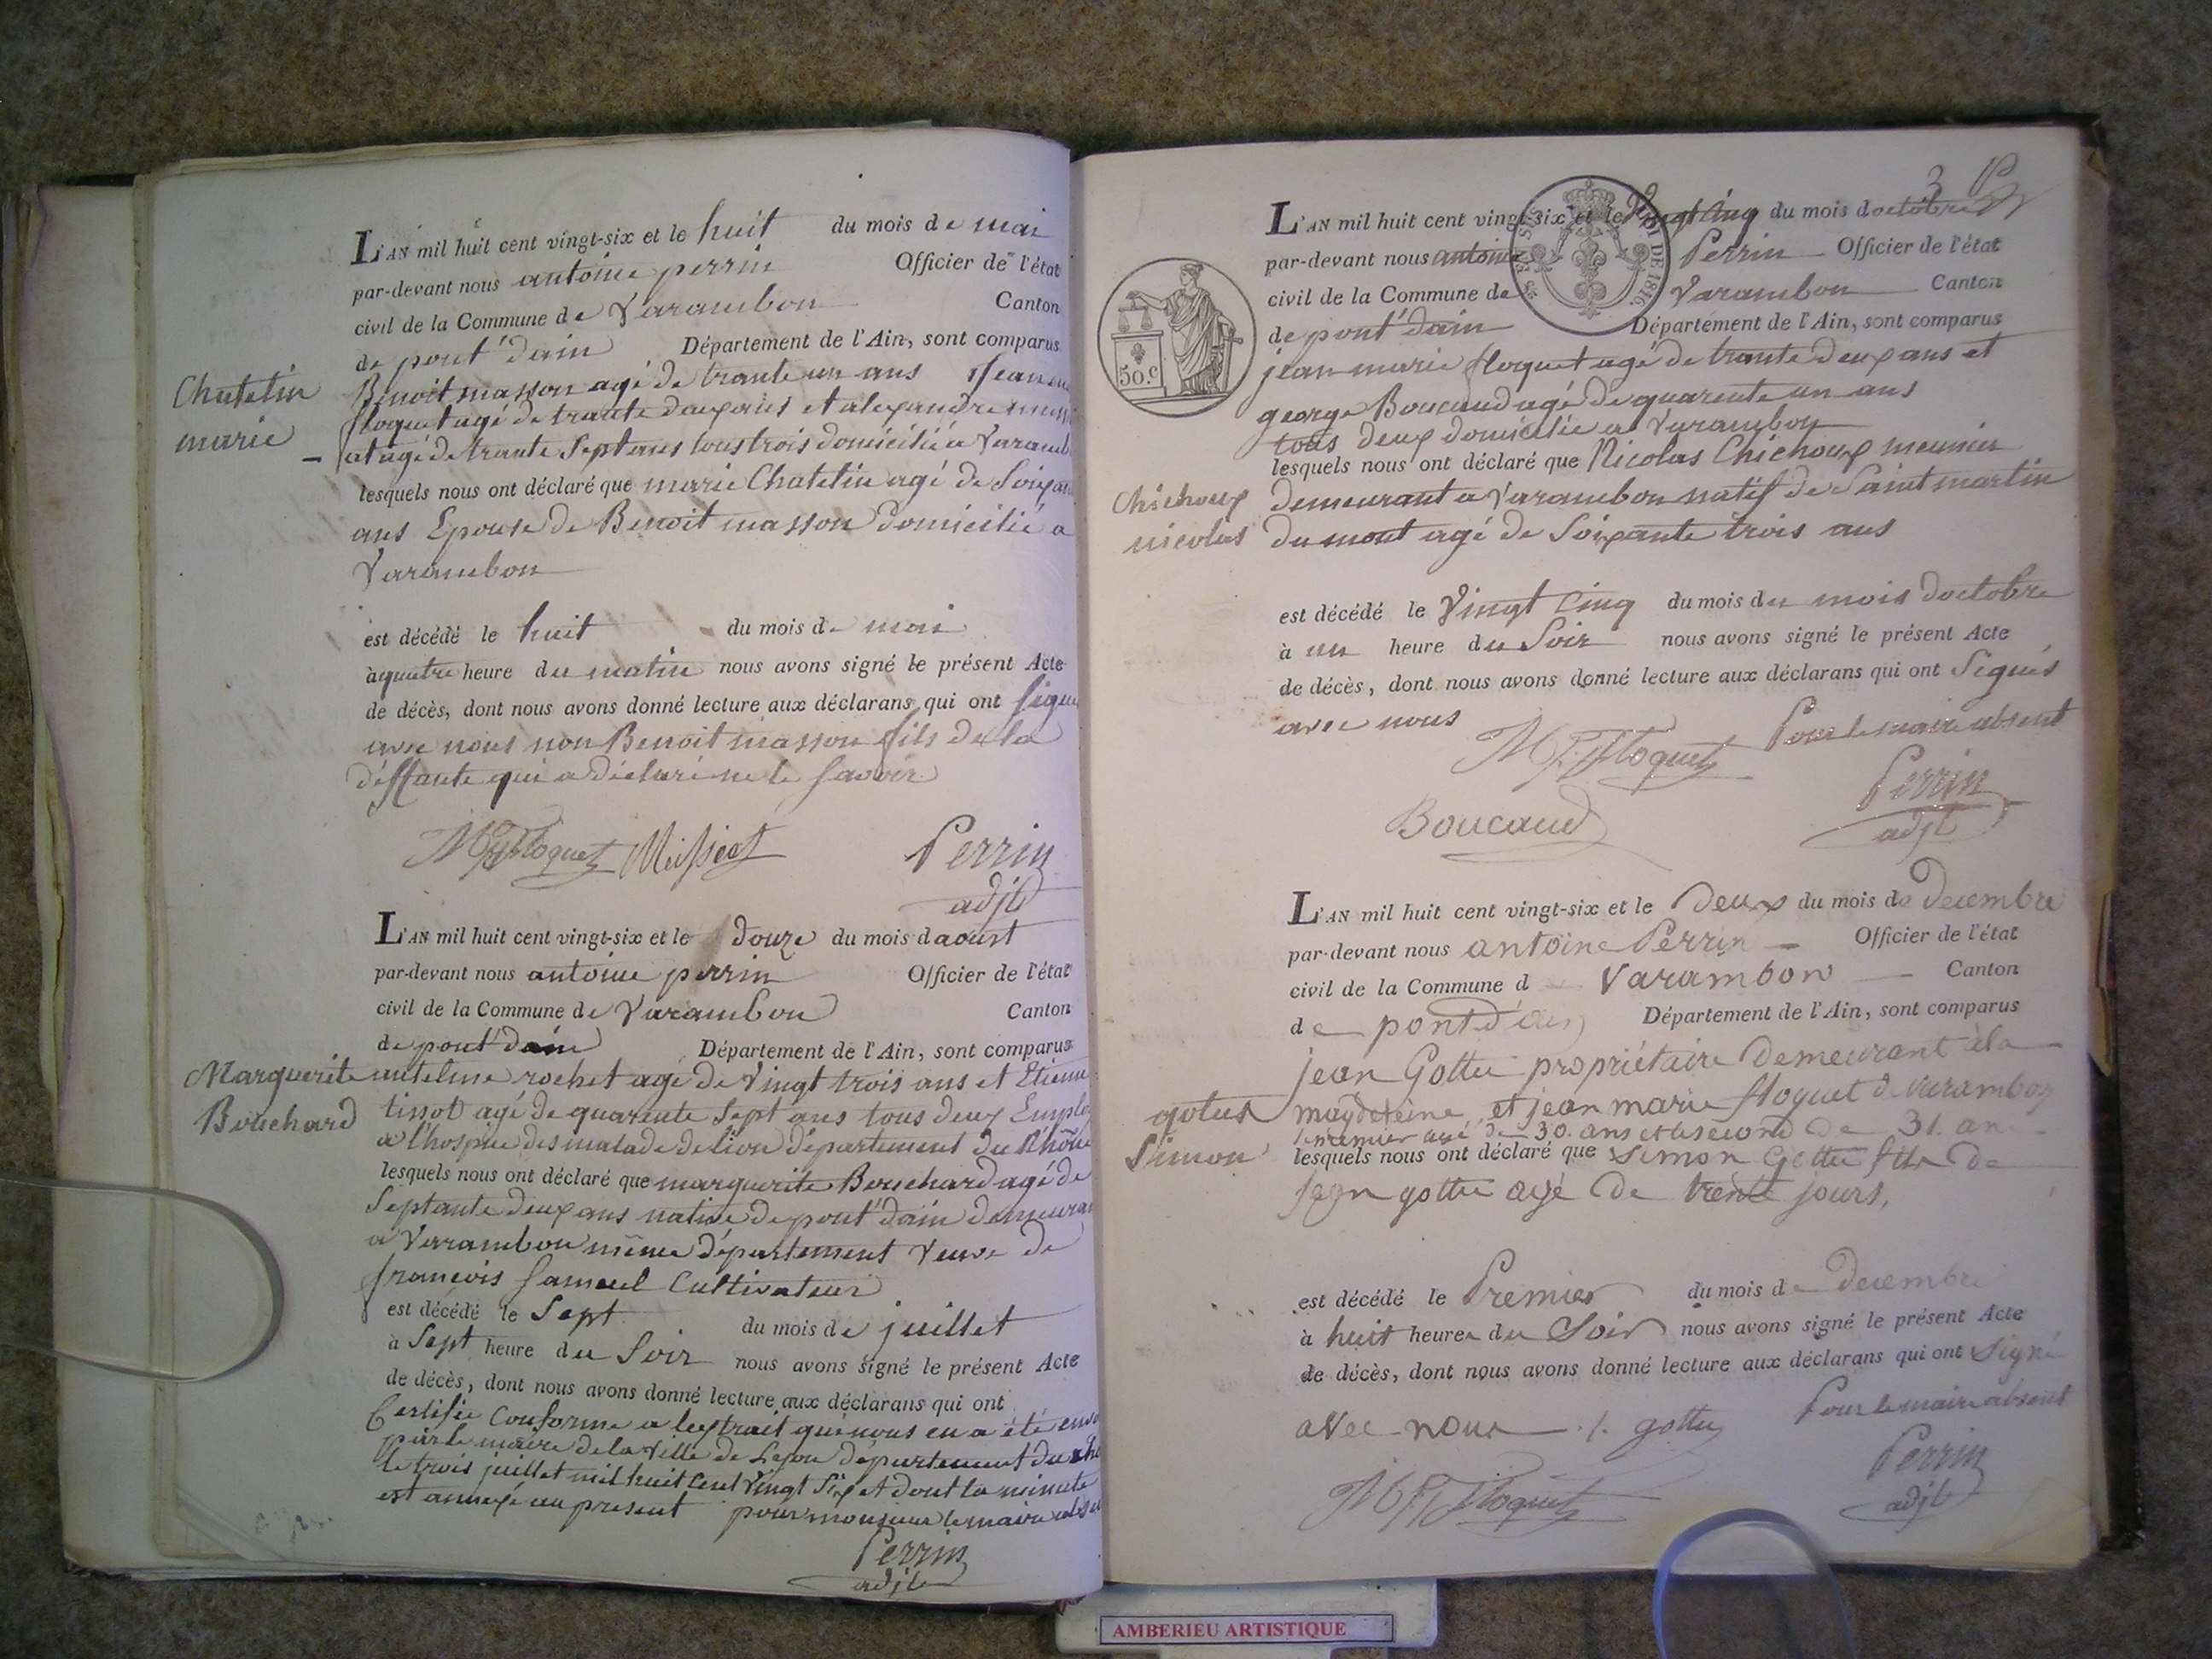 L'AN mil huit cent vingt-six et le huit du mois de mai
par-devant nous antoine perrin Officier de l'état
civil de la Commune de Varambon Canton
de pont d'ain Département de l'Ain, sont comparus
Chatelin
marie
Benoit masson agé de trante un ans
floquet agé de trante deux ans et alexandre
agé de trante Sept ans tous trois domicilié a
lesquels nous ont déclaré que marie Chatelin agé de
ans Epouse de Benoit masson domicilié a
Varambon
est décédé le huit du mois d mai
à quatre heure du matin nous avons signé le présent Acte
de décès, dont nous avons donné lecture aux déclarans qui ont
avec nous non Benoit masson fils de la
deffunte qui a déclaré ne le savoir
Floquet Perrin
adjt
L'AN mil huit cent vingt-six et le douze du mois d aoust
par-devant nous antoine perrin Officier de l'état
civil de la Commune de Varambon Canton
de pont d'ain Département de l'Ain, sont comparus
Marguerite
Bouchard
antelme rochet age de Vingt trois ans et Etienne
tissot agé de quarente Sept ans tous deux
a l'hospice des malade de lion département du Rhône
lesquels nous ont déclaré que marguerite Bouchard agé de
Septante deux ans native de pont d'ain
a Varambon même département Veuve de
francois Samuel Cultivateur
est décédé le Sept du mois de juillet
à Sept heure du Soir nous avons signé le présent Acte
de décès, dont nous avons donné lecture aux déclarans qui ont
Certifié Conforme a lextrait qui nous en a été
par le maire de la Ville de Lyon département du
le trois juillet mil huit Cent Vingt Six et dont la minute
est annexé au present pour monsieur le maire
Perrin
adjt
3
L'AN mil huit cent vingt-six et le Vingt Cinq du mois d octobre
par-devant nous antoine Perrin Officier de l'état
civil de la Commune de Varambon Canton
de pont d'ain Département de l'Ain, sont comparus
50.c
DE 1816.
jean marie floquet agé de trante deux ans et
george Boucaud agé de quarente un ans
tous deux domicilié a Varambon
lesquels nous ont déclaré que Nicolas Chichoux meunier
Chichoux
nicolas
demeurant a Varambon natif de Saint martin
du mont agé de Soixante trois ans
est décédé le Vingt Cinq du mois du mois d'octobre
à un heure du Soir nous avons signé le présent Acte
de décès, dont nous avons donné lecture aux déclarans qui ont Signés
avec nous
Floquet Pour le maire absent
Boucaud Perrin
adjt
L'AN mil huit cent vingt-six et le Deux du mois de Decembre
par-devant nous antoine Perrin Officier de l'état
civil de la Commune d Varambon Canton
de pont d'ain Département de l'Ain, sont comparus
jean Gottu propriétaire Demeurant à la
Simon
magdeleine et jean marie floquet de Varambon
le premier agé de 30. ans et le second de 31. an
lesquels nous ont déclaré que Simon Gottu fils de
jean gottu agé de trente jours,
est décédé le Premier du mois de Decembre
à huit heures du Soir nous avons signé le présent Acte
de décès, dont nous avons donné lecture aux déclarans qui ont Signé
avec nous J. gottu Pour le maire absent
Floquet Perrin
adjt
AMBERIEU ARTISTIQUE